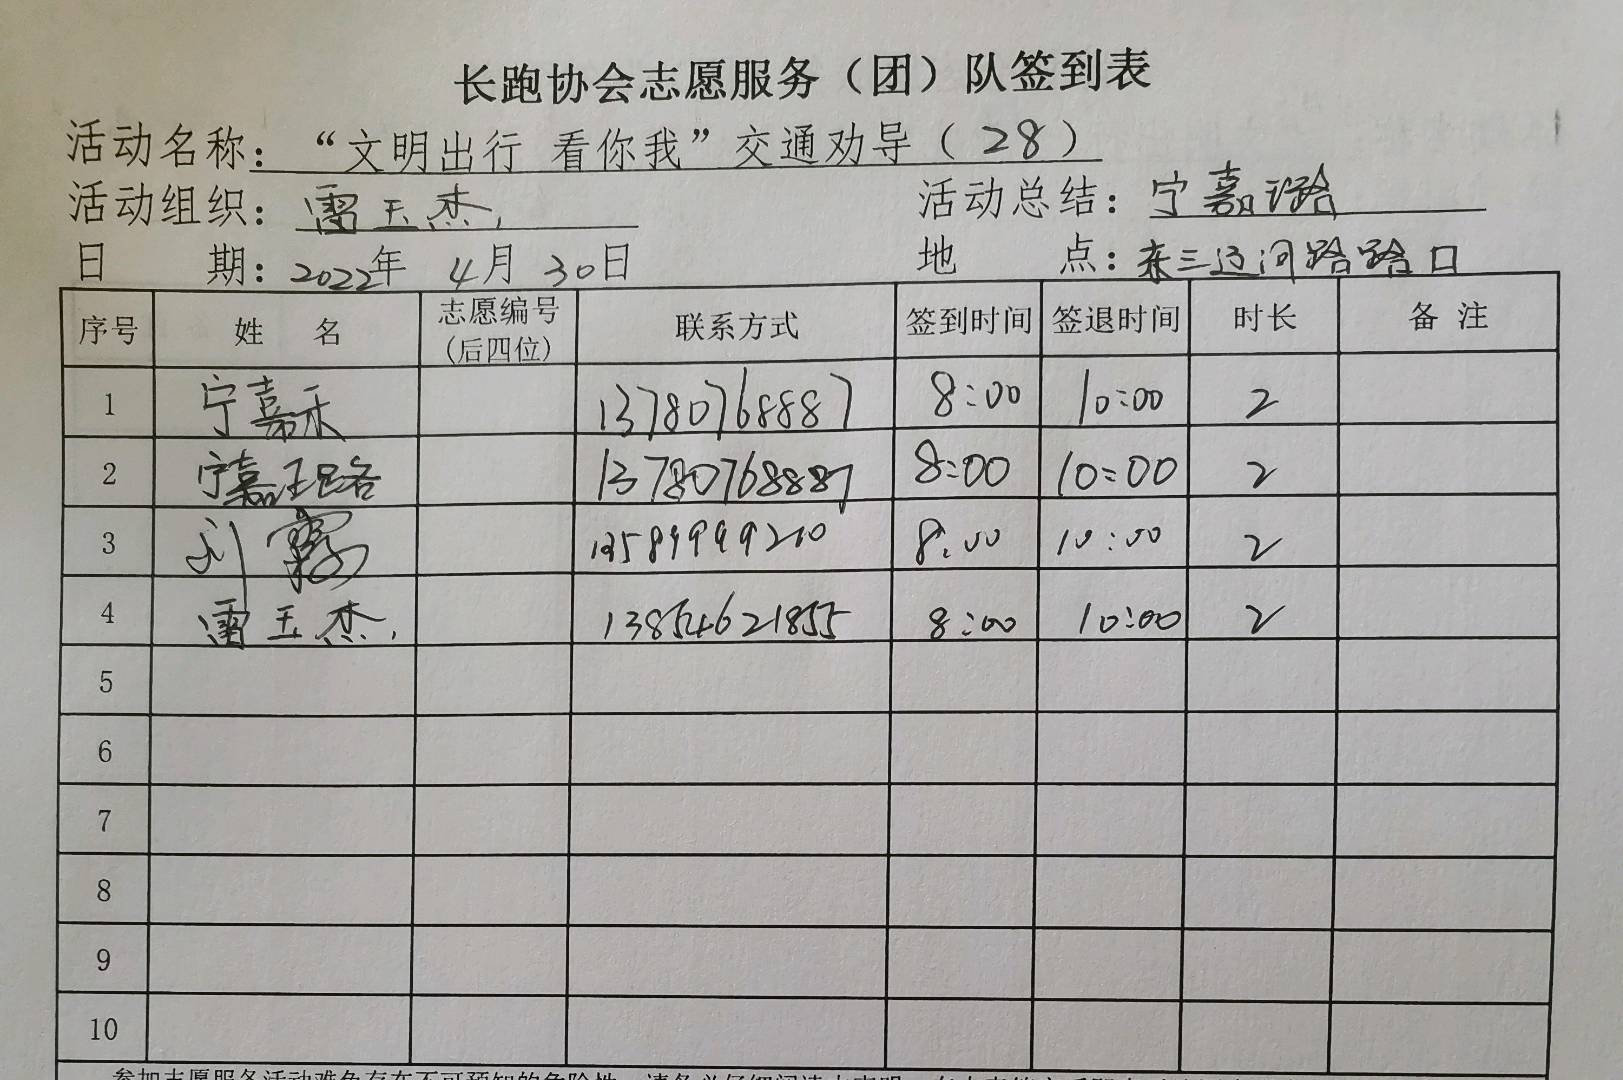 长跑协会志愿服务（团）队签到表
活动名称：“文明出行 看你我”交通劝导（28）
活动组织：雷玉杰 活动总结：宁嘉璐
日 期：2022年 4月 30日 地 点：东三路河路路口
序号 姓 名 志愿编号(后四位) 联系方式 签到时间 签退时间 时长 备 注
1 宁嘉禾 13780768887 8:00 10:00 2
2 宁嘉璐 13780768887 8:00 10:00 2
3 刘 13589999210 8:00 10:00 2
4 雷玉杰 13854621855 8:00 10:00 2
5
6
7
8
9
10